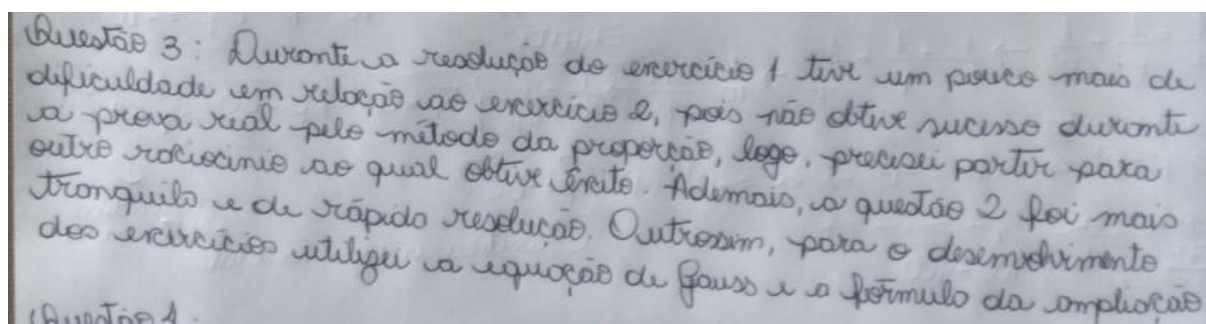 Questão 3: Durante a resolução do exercício 1 tive um pouco mais de
dificuldade em relação ao exercício 2, pois não obtive sucesso durante
a prova real pelo método da proporção, logo, precisei partir para
outro raciocínio ao qual obtive êxito. Ademais, a questão 2 foi mais
tranquilo e de rápida resolução. Outrossim, para o desenvolvimento
dos exercícios utilizei a equação de Gauss e a fórmula da ampliação
Questão 1.